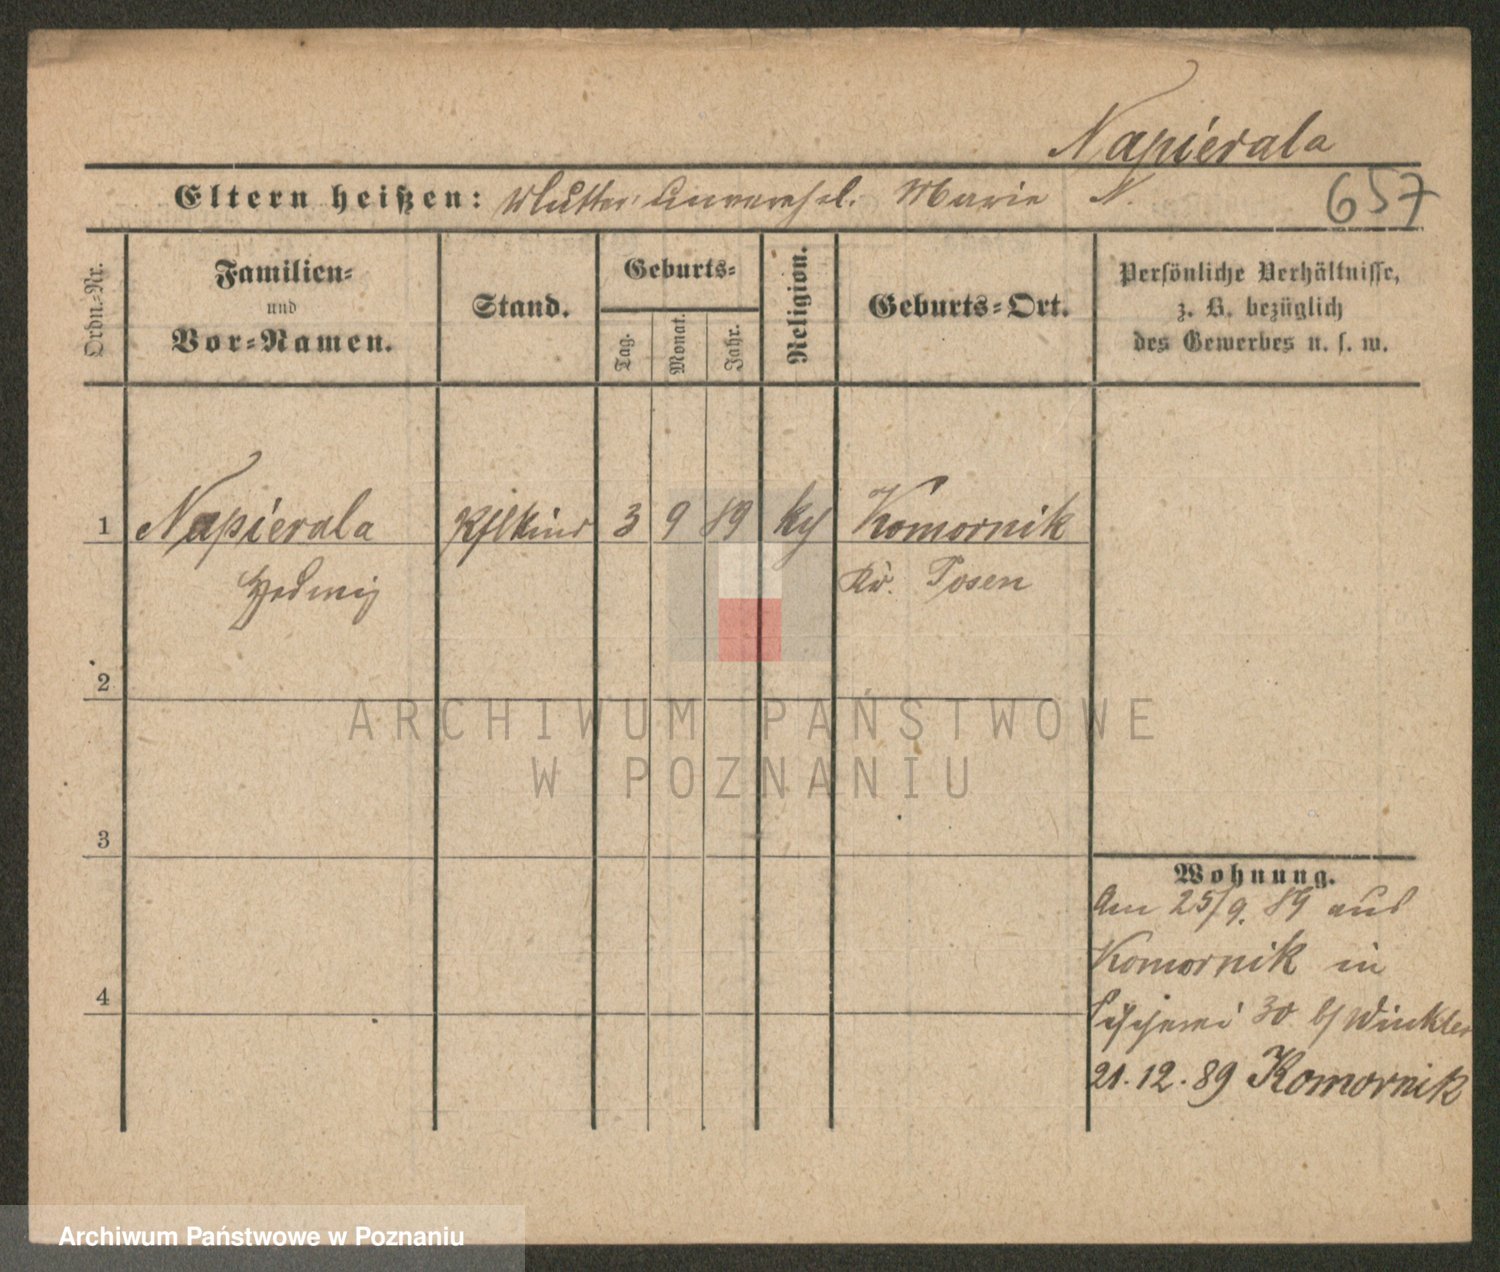 Napierala
Eltern heißen: Mutter: unverehel. Marie N.
657
Ordn.-Nr.
Familien-
und
Vor-Namen.
Stand.
Geburts-
Tag.
Monat.
Jahr.
Religion.
Geburts-Ort.
Persönliche Verhältnisse,
z. B. bezüglich
des Gewerbes u. s. w.
1 Napierala Pflkind 3 9 89 Komornik
Hedwig Kr. Posen
2
ARCHIWUM PAŃSTWOWE
W POZNANIU
3
Wohnung.
Am 25/9. 89 aus
Komornik in
Fischerei 30 b/ Winkler
4
21.12.89 Komornik
Archiwum Państwowe w Poznaniu